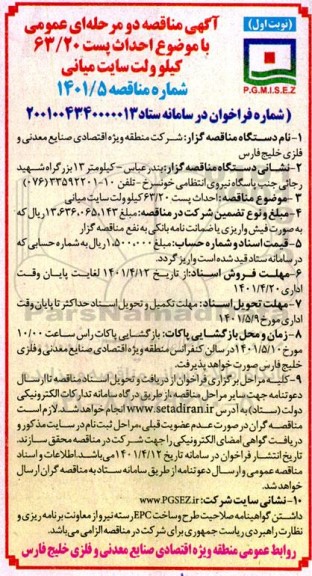 (نوبت اول)
آگهی مناقصه دو مرحله‌ای عمومی
با موضوع احداث پست ۶۳/۲۰
کیلو ولت سایت میانی
شماره مناقصه ۱۴۰۱/۵
P.G.M.I.S.E.Z
( شماره فراخوان در سامانه ستاد ۲۰۰۱۰۰۴۳۴۰۰۰۰۰۱۳
۱- نام دستگاه مناقصه گزار: شرکت منطقه ویژه اقتصادی صنایع معدنی و
فلزی خلیج فارس
۲- نشانی دستگاه مناقصه گزار: بندرعباس - کیلومتر ۱۳ بزرگراه شهید
رجائی جنب پاسگاه نیروی انتظامی خونسرخ - تلفن ۱۰-۳۳۵۹۲۲۰۱ (۰۷۶)
۳- موضوع مناقصه: احداث پست ۶۳/۲۰ کیلو ولت سایت میانی
۴- مبلغ و نوع تضمین شرکت در مناقصه: مبلغ ۱۳،۶۳۶،۰۶۵،۱۴۳ ریال که
به صورت فیش واریزی یا ضمانت نامه بانکی به نفع مناقصه گزار
۵- قیمت اسناد و شماره حساب: مبلغ ۱،۵۰۰،۰۰۰ ریال به شماره حسابی که
در سامانه ستاد قید شده است واریز گردد.
۶- مهلت فروش اسناد: از تاریخ ۱۴۰۱/۴/۱۲ لغایت پایان وقت
اداری ۱۴۰۱/۴/۲۰
۷- مهلت تحویل اسناد: مهلت تکمیل و تحویل اسناد حداکثر تا پایان وقت
اداری مورخ ۱۴۰۱/۵/۹
۸- زمان و محل بازگشایی پاکات: بازگشایی پاکات راس ساعت ۱۰/۰۰
مورخ ۱۴۰۱/۵/۱۰ در سالن کنفرانس منطقه ویژه اقتصادی صنایع معدنی و فلزی
خلیج فارس صورت خواهد پذیرفت.
۹- کلیه مراحل برگزاری فراخوان از دریافت و تحویل اسناد مناقصه تا ارسال
دعوتنامه جهت سایر مراحل مناقصه از طریق درگاه سامانه تدارکات الکترونیکی
دولت (ستاد) به آدرس www.setadiran.ir انجام خواهد شد. لازم است
مناقصه گران در صورت عدم عضویت قبلی، مراحل ثبت نام در سایت مذکور و
دریافت گواهی امضای الکترونیکی را جهت شرکت در مناقصه محقق سازند.
تاریخ انتشار فراخوان در سامانه تاریخ ۱۴۰۱/۴/۱۲ می‌باشد. اطلاعات و اسناد
مناقصه عمومی و ارسال دعوتنامه از طریق سامانه ستاد به مناقصه گران ارسال
خواهد شد.
۱۰- نشانی سایت شرکت: www.PGSEZ.ir
داشتن گواهینامه صلاحیت طرح و ساخت EPC رسته نیرو از معاونت برنامه ریزی و
نظارت راهبردی ریاست جمهوری برای شرکت در مناقصه الزامی می‌باشد.
روابط عمومی منطقه ویژه اقتصادی صنایع معدنی و فلزی خلیج فارس